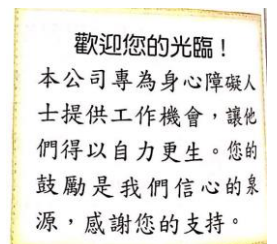 歡迎您的光臨！
本公司專為身心障礙人
士提供工作機會，讓他
們得以自力更生。您的
鼓勵是我們信心的泉
源，感謝您的支持。